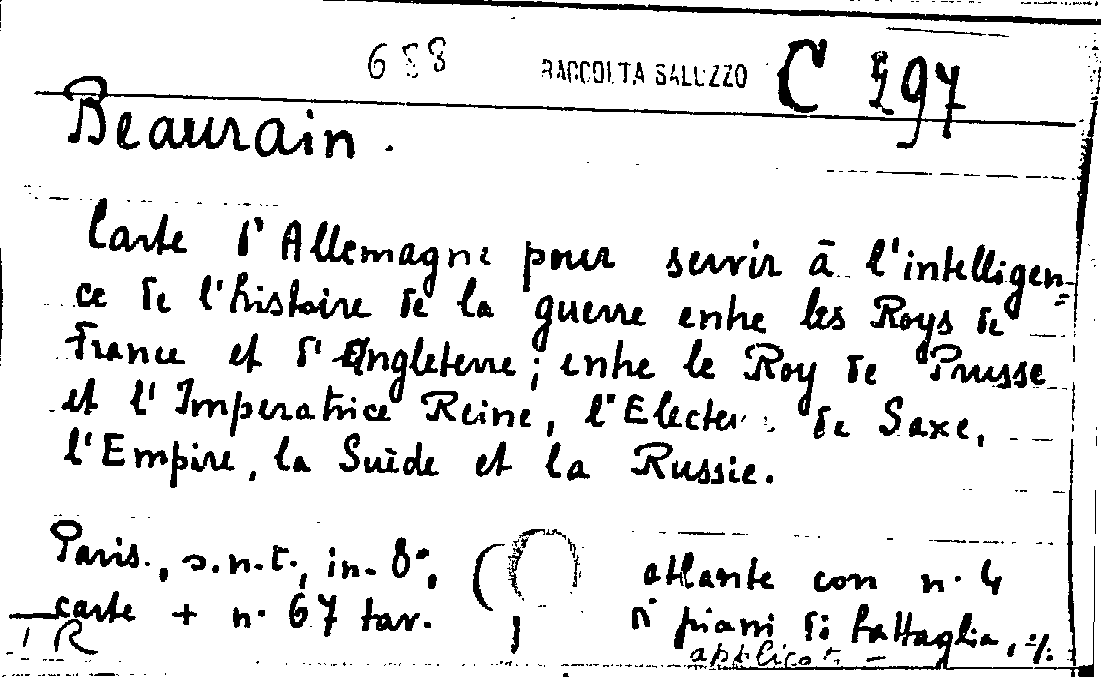 688 RACCOLTA SALUZZO C 297
Beaurain.
Carte d'Allemagne pour servir à l'intelligen=
ce de l'histoire de la guerre entre les Roys de
France et d'Engleterre; entre le Roy de Prusse
et l'Imperatrice Reine, l'Electeur de Saxe,
l'Empire, la Suède et la Russie.
Paris., s.n.t., in-8°, ( atlante con n. 4
carte + n. 67 tav. di piani di battaglia, ./.
R applicat